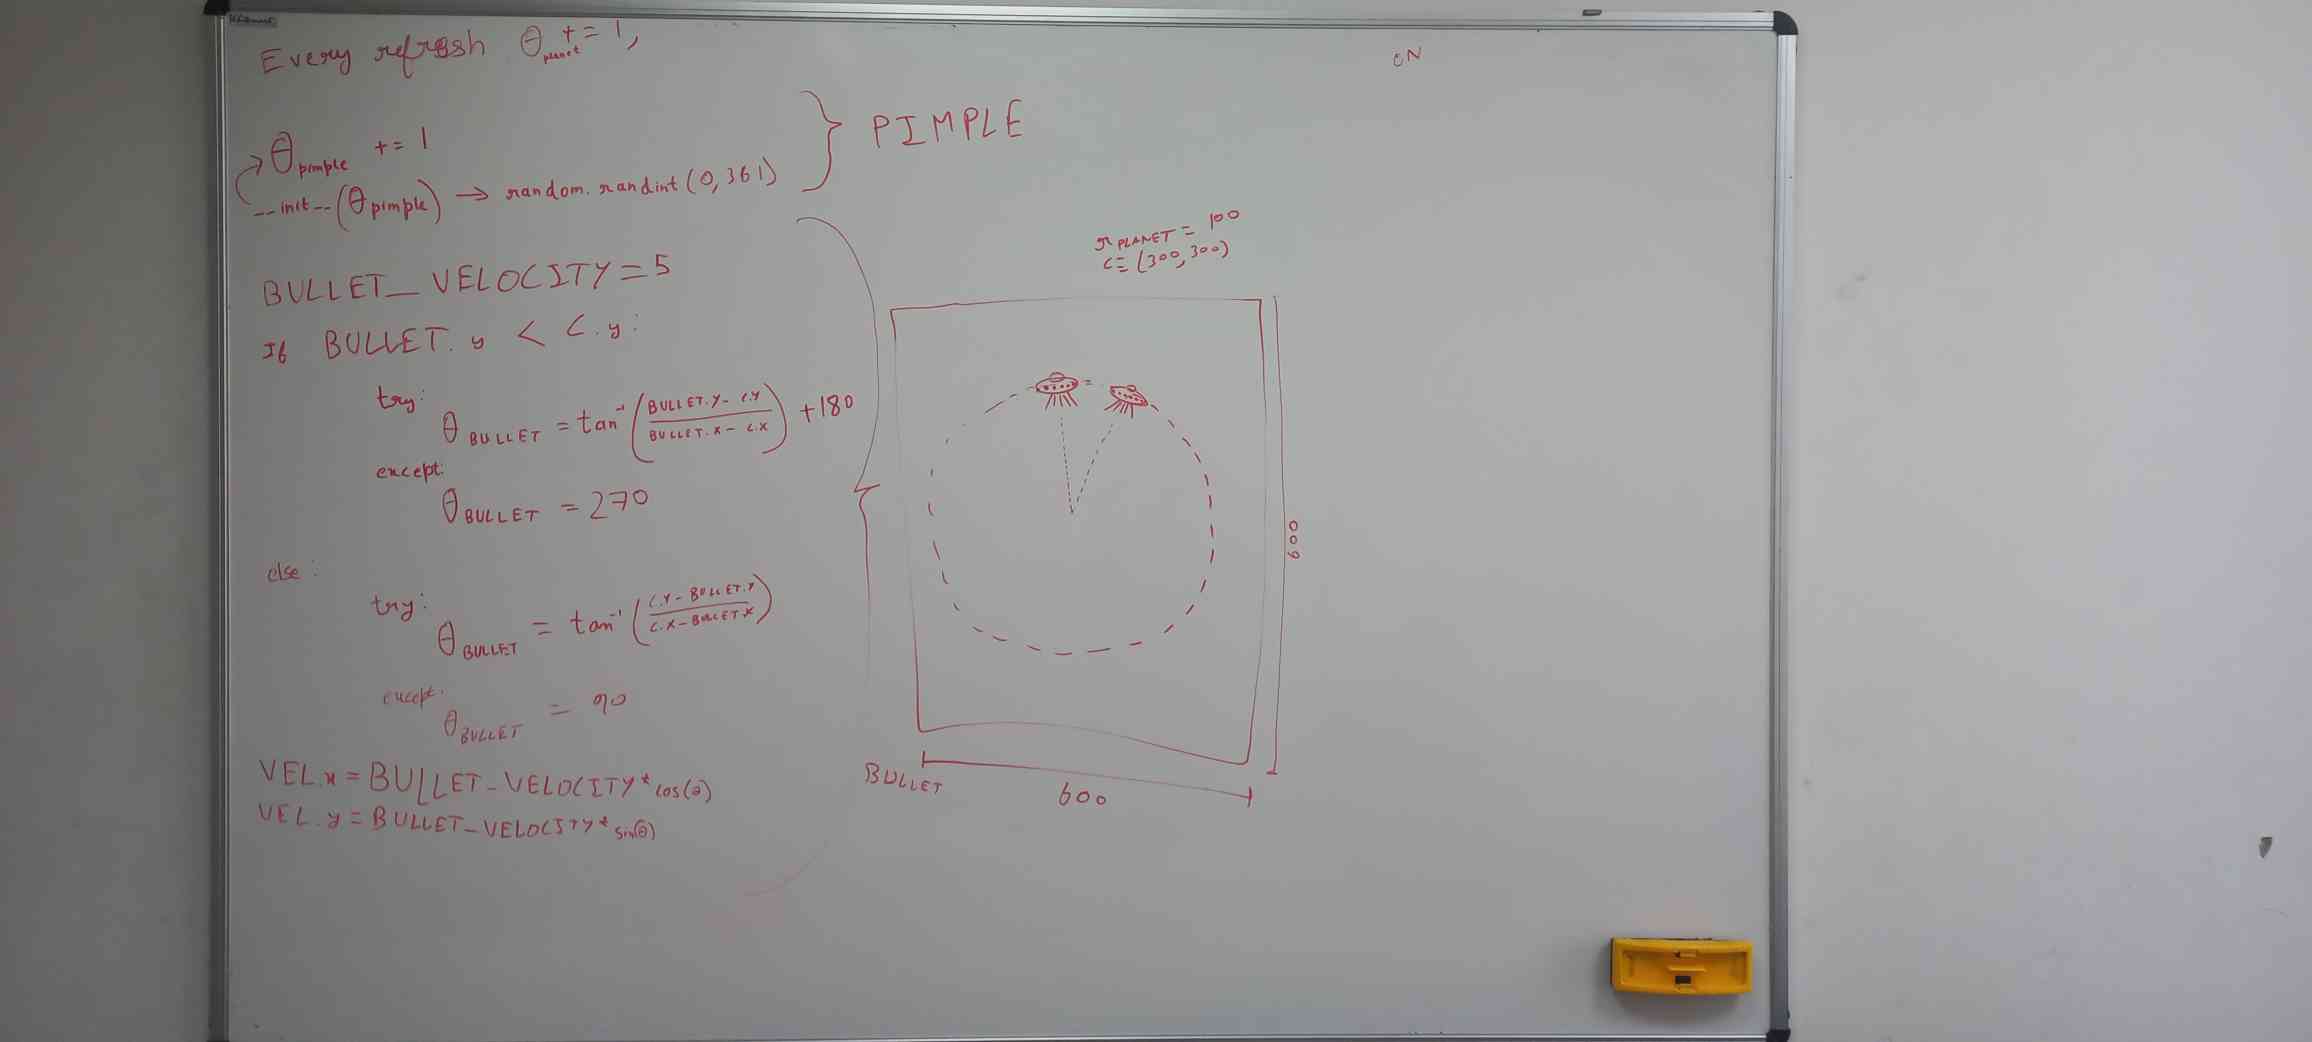 Every refresh θ planet += 1,
θ pimple += 1
--init--(θ pimple) → random.randint(0,361)
} PIMPLE
BULLET_VELOCITY=5
If BULLET.y < C.y:
try:
θ BULLET = tan⁻¹(BULLET.Y - C.Y / BULLET.X - C.X) +180
except:
θ BULLET = 270
else:
try:
θ BULLET = tan⁻¹(C.Y - BULLET.Y / C.X - BULLET.X)
except:
θ BULLET = 90
VEL.x = BULLET_VELOCITY* cos(θ)
VEL.y = BULLET_VELOCITY* sin(θ)
BULLET
r PLANET = 100
C = (300,300)
600
600
ON